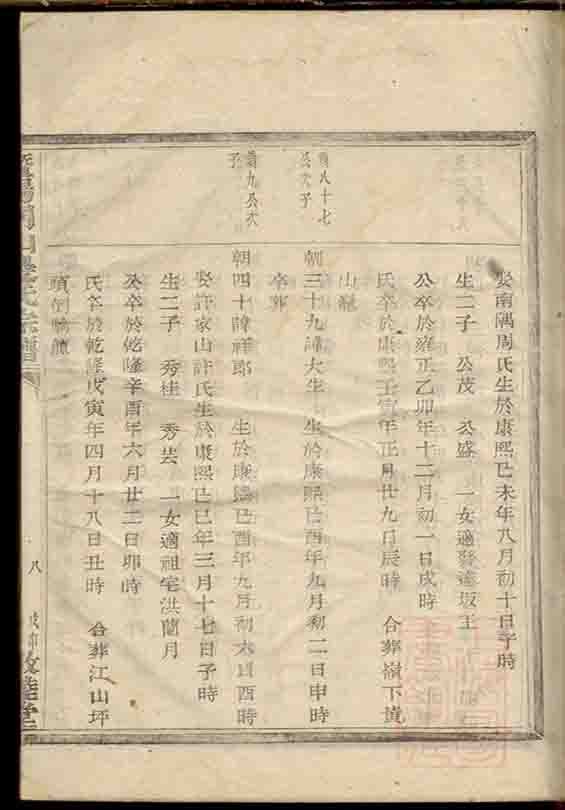 娶南隅周氏生於康熙己未年八月初十日子時
生二子 公茂 公盛 一女適 坂王
公卒於雍正乙卯年十二月初一日戌時
氏卒於康熙壬寅年正月廿九日辰時 合葬嶺下
山
朝三十九諱大生 生於康熙己酉年九月初二日申時
卒葬
公次子
朝四十諱祥郎 生於康熙己酉年九月初六日酉時
九公次
子
娶許家山許氏生於康熙己巳年三月十七日子時
生二子 秀桂 秀芸 一女適祖宅洪蘭月
公卒於乾隆辛酉年六月廿二日卯時
氏卒於乾隆戊寅年四月十八日丑時 合葬江山坪
頭
氏宗譜
八